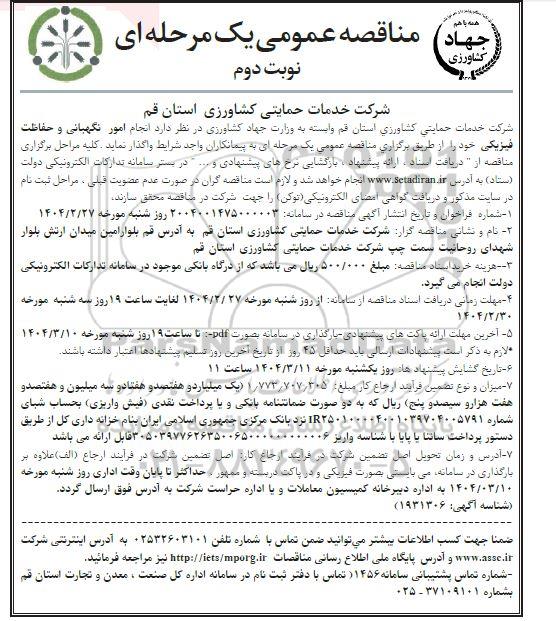 همه با هم
جهاد
کشاورزی
مناقصه عمومی یک مرحله ای
نوبت دوم
شرکت خدمات حمایتی کشاورزی استان قم
شرکت خدمات حمایتي کشاورزي استان قم وابسته به وزارت جهاد کشاورزی در نظر دارد انجام امور نگهبانی و حفاظت
فیزیکی خود را از طریق برگزاري مناقصه عمومي يک مرحله ای به پیمانکاران واجد شرایط واگذار نماید .کلیه مراحل برگزاری
مناقصه از " دریافت اسناد ، ارائه پیشنهاد ، بازگشایی نرخ های پیشنهادی و ... " در بستر سامانه تدارکات الکترونیکی دولت
(ستاد) به آدرس www.setadiran.ir انجام خواهد شد و لازم است مناقصه گران در صورت عدم عضویت قبلی ، مراحل ثبت نام
در سایت مذکور و دریافت گواهی امضای الکترونیکی(توکن) را جهت شرکت در مناقصه محقق سازند.
۱-شماره فراخوان و تاریخ انتشار آگهی مناقصه در سامانه: ۲۰۰۴۰۰۱۴۷۵۰۰۰۰۰۳ روز شنبه مورخه ۱۴۰۴/۲/۲۷
۲- نام و نشانی مناقصه گزار: شرکت خدمات حمایتی کشاورزی استان قم به آدرس قم بلوارامین میدان ارتش بلوار
شهدای روحانیت سمت چپ شرکت خدمات حمایتی کشاورزی استان قم
۳--هزینه خریداسناد مناقصه: مبلغ ۵۰۰/۰۰۰ ریال می باشد که از درگاه بانکی موجود در سامانه تدارکات الکترونیکی
دولت انجام می گیرد.
۴-مهلت زمانی دریافت اسناد مناقصه از سامانه: از روز شنبه مورخه ۱۴۰۴/۲/۲۷ لغایت ساعت ۱۹روز سه شنبه مورخه
۱۴۰۴/۲/۳۰
۵- آخرین مهلت ارائه پاکت های پیشنهادی-بارگذاری در سامانه بصورت pdf-: تا ساعت۱۹روز شنبه مورخه ۱۴۰۴/۳/۱۰
*لازم به ذکر است پیشنهادات ارسالی باید حداقل ۴۵ روز از تاریخ آخرین روز تسلیم پیشنهادها اعتبار داشته باشند.
۶-تاریخ گشایش پیشنهاد ها: روز یکشنبه مورخه ۱۴۰۴/۳/۱۱ ساعت ۱۱
۷-میزان و نوع تضمین فرآیند ارجاع کار مبلغ/ ۱،۷۷۳،۷۰۷،۳۰۵ (یک میلیاردو هفتصدو هفتادو سه میلیون و هفتصدو
هفت هزارو سیصدو پنج) ریال که به دو صورت ضمانتنامه بانکی و یا پرداخت نقدی (فیش واریزی) بحساب شبای
شماره IR۲۵۰۱۰۰۰۰۴۰۰۱۰۳۹۷۰۴۰۰۵۷۹۱ نزد بانک مرکزی جمهوری اسلامی ایران بنام خزانه داری کل از طریق
دستور پرداخت ساتنا یا پایا با شناسه واریز قابل ارائه می باشد
۷-آدرس و زمان تحویل اصل تضمین شرکت در فرآیند ارجاع کار: اصل تضمین شرکت در فرآیند ارجاع (الف)علاوه بر
بارگذاری در سامانه، می بایستی بصورت فیزیکی و در پاکت دربسته و ممهور ، حداکثر تا پایان وقت اداری روز شنبه مورخه
۱۴۰۴/۰۳/۱۰ به اداره دبیرخانه کمیسیون معاملات و یا اداره حراست شرکت به آدرس فوق ارسال گردد.
(شناسه آگهی: ۱۹۳۱۳۰۶)
ضمنا جهت کسب اطلاعات بیشتر می‌توانید ضمن تماس با شماره تلفن ۰۲۵۳۲۶۰۳۱۰۱ به آدرس اینترنتی شرکت
www.assc.ir و آدرس پایگاه ملی اطلاع رسانی مناقصات http://iets/mporg.ir نیز مراجعه فرمائید.
-شماره تماس پشتیبانی سامانه۱۴۵۶( تماس با دفتر ثبت نام در سامانه اداره کل صنعت ، معدن و تجارت استان قم
بشماره ۳۷۱۰۹۱۰۱ - ۰۲۵